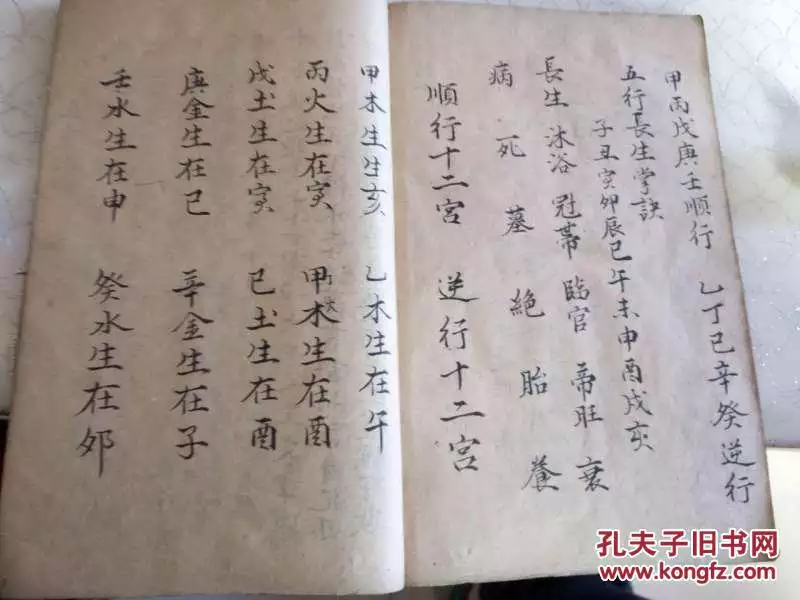 甲丙戊庚壬順行 乙丁己辛癸逆行
五行長生掌訣
子丑寅卯辰巳午未申酉戌亥
長生 沐浴 冠帶 臨官 帝旺 衰
病 死 墓 絕 胎 養
順行十二宮 逆行十二宮
甲木生生亥 乙木生在午
丙火生在寅 甲木生在酉
戊土生在寅 已土生在酉
庚金生在巳 辛金生在子
壬水生在申 癸水生在卯
孔夫子旧书网
www.kongfz.com